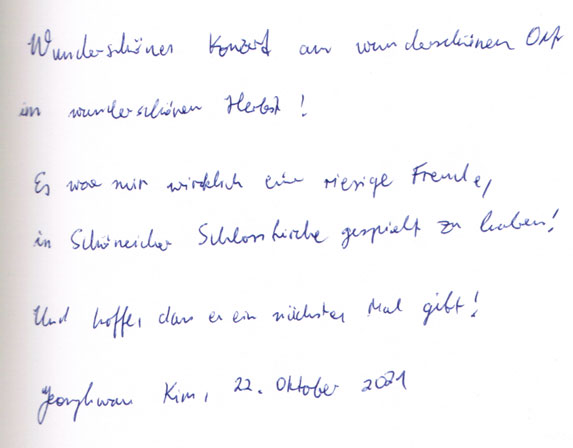 Wunderschönes Konzert am wunderschönen Ort
im wunderschönen Herbst!
Es war mir wirklich eine riesige Freude,
in Schöneicher Schlosskirche gespielt zu haben!
Und hoffe, dass es ein nächstes Mal gibt!
Jeonghwan Kim, 22. Oktober 2021